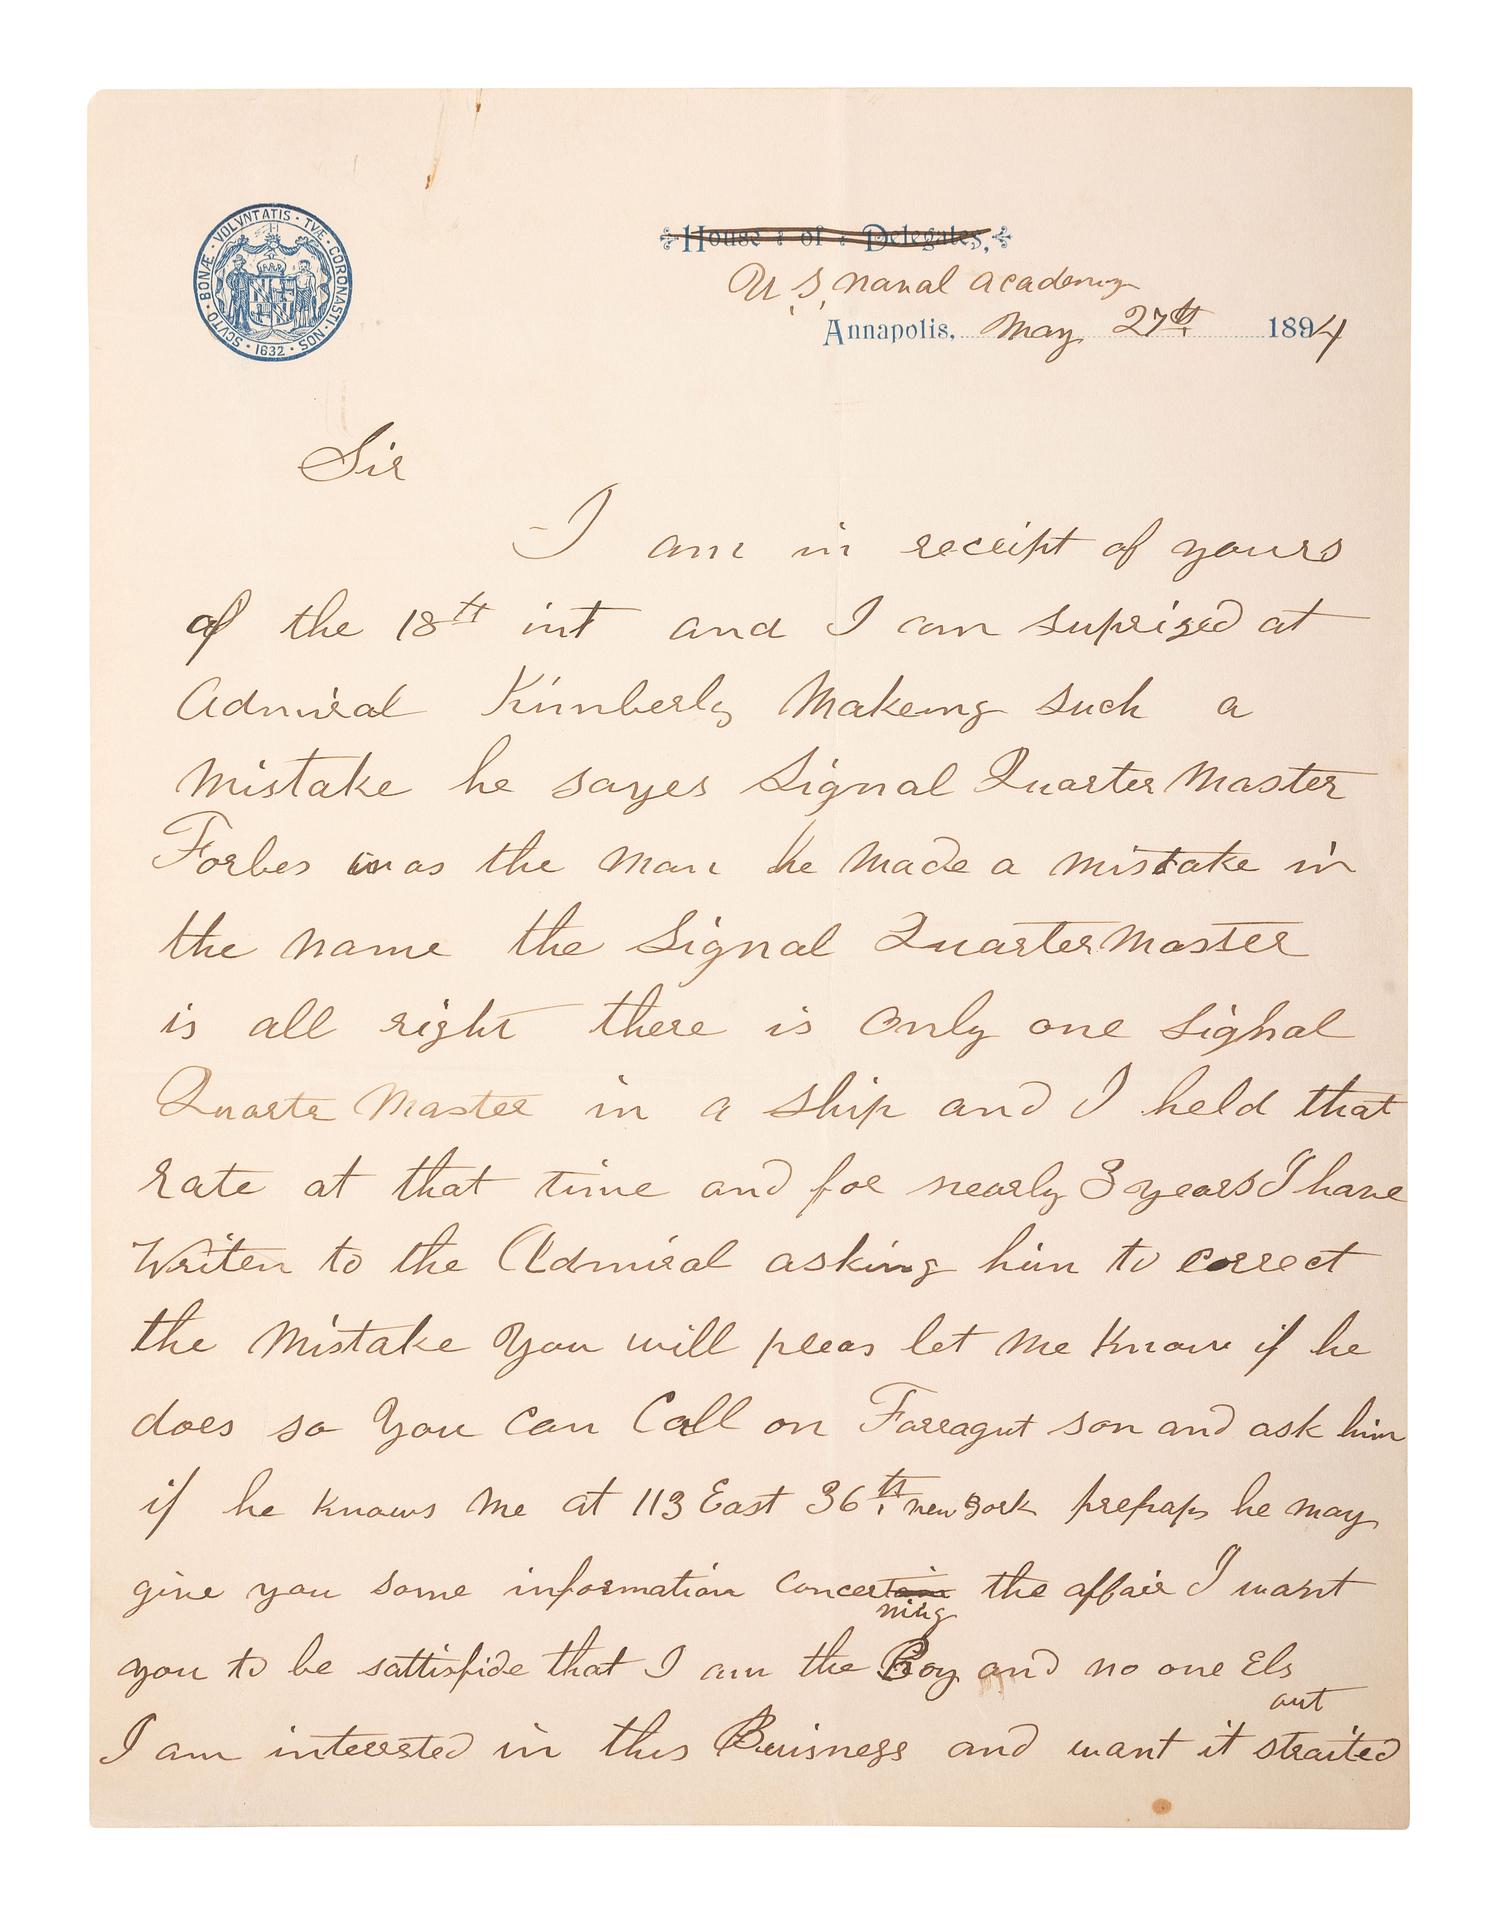 SCVTO · BONÆ · VOLVNTATIS · TVÆ · CORONASTI · NOS
· 1632 ·
House : of : Delegates,
U. S. Naval Academy
Annapolis, May 27th 1894
Sir
I am in receipt of yours
of the 18th int and I am suprized at
Admiral Kimberly Makeing such a
Mistake he sayes Signal Quarter Master
Forbes was the Man he Made a Mistake in
the name the Signal QuarterMaster
is all right there is Only one Signal
Quarte Master in a Ship and I held that
rate at that time and for nearly 3 years I have
Writen to the Admiral asking him to correct
the Mistake You will pleas let Me Know if he
does so You Can Call on Farragut son and ask him
if he Knows Me at 113 East 36th new york prehaps he may
give you some information concertain the affair I want
ning
you to be sattisfide that I am the Boy and no one Els
out
I am interested in this Buisness and want it straited